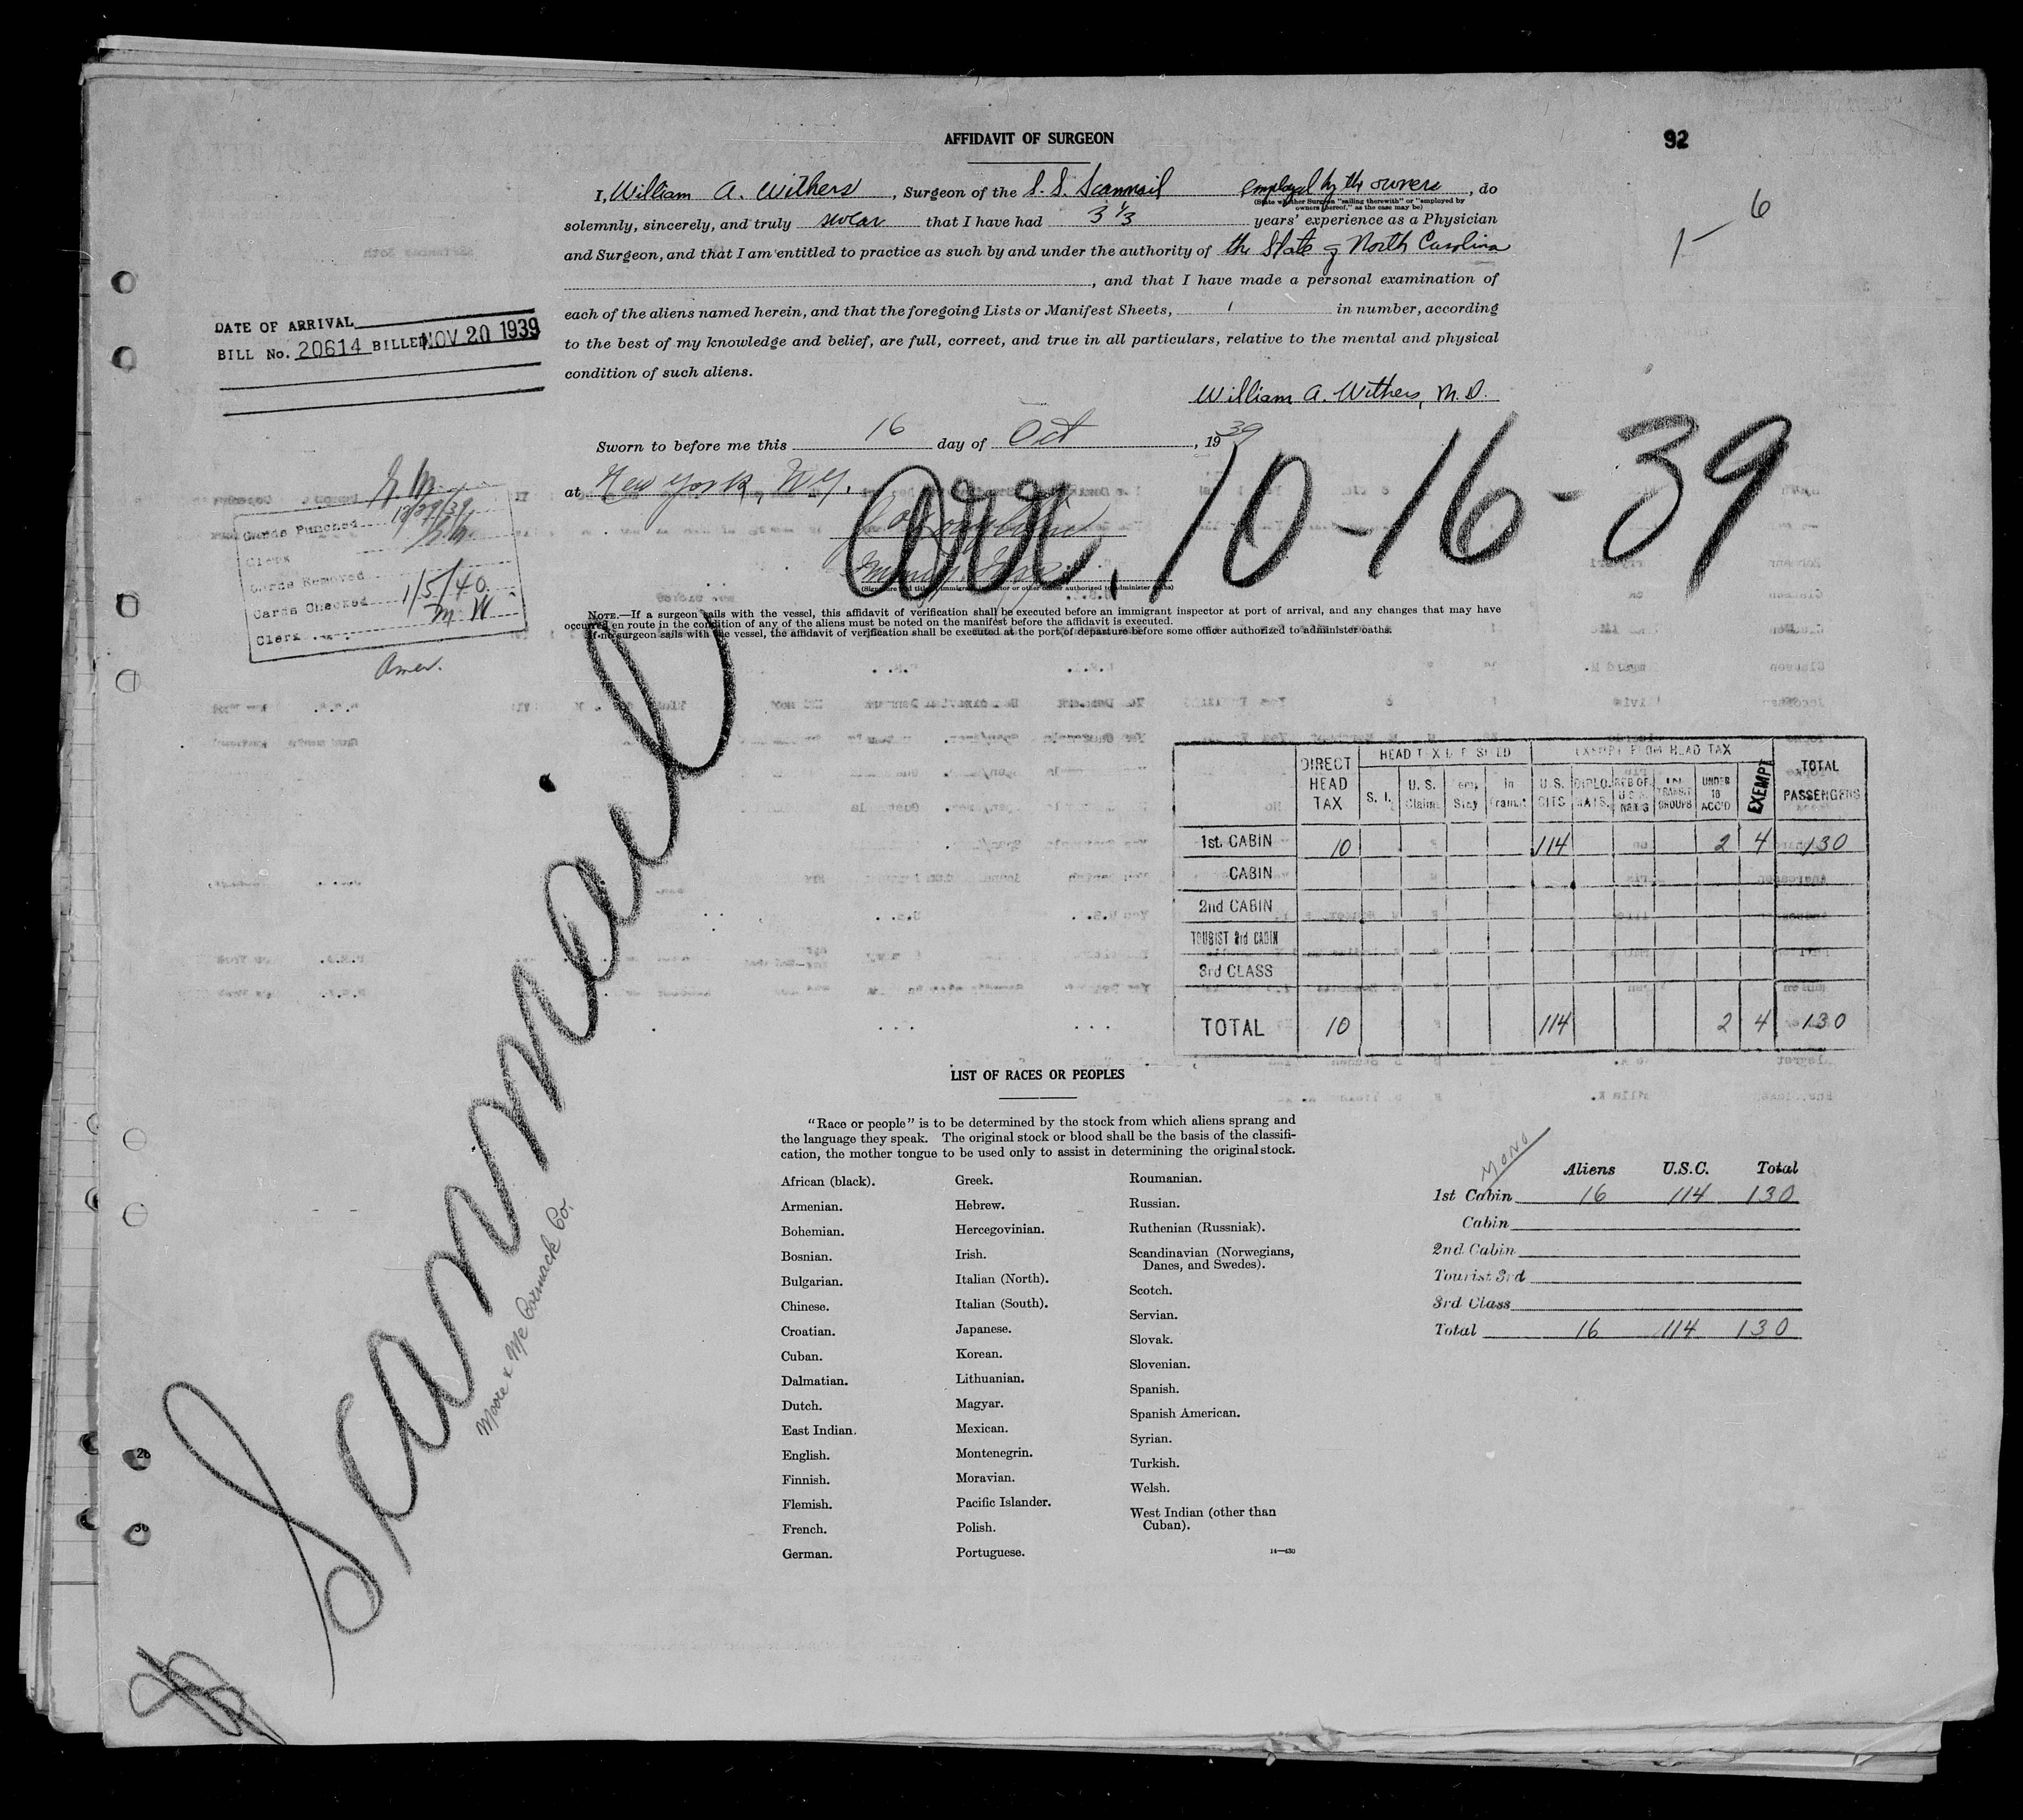 AFFIDAVIT OF SURGEON
92
I, William A. Withers, Surgeon of the S. S. Scanmail employed by the owners, do
(State whether Surgeon "sailing therewith" or "employed by
owners thereof," as the case may be)
solemnly, sincerely, and truly swear that I have had 3 1/3 years' experience as a Physician
and Surgeon, and that I am entitled to practice as such by and under the authority of the State of North Carolina
, and that I have made a personal examination of
each of the aliens named herein, and that the foregoing Lists or Manifest Sheets, 1 in number, according
to the best of my knowledge and belief, are full, correct, and true in all particulars, relative to the mental and physical
condition of such aliens.
William A. Withers, M.D.
Sworn to before me this 16 day of Oct, 1939
at New York, N.Y.
Arr. 10-16-39
NOTE.—If a surgeon sails with the vessel, this affidavit of verification shall be executed before an immigrant inspector at port of arrival, and any changes that may have
occurred en route in the condition of any of the aliens must be noted on the manifest before the affidavit is executed.
If no surgeon sails with the vessel, the affidavit of verification shall be executed at the port of departure before some officer authorized to administer oaths.
6
1-
DATE OF ARRIVAL
BILL No. 20614 BILLED NOV 20 1939
Cards Punched
Clerk
Cards Removed
Cards Checked 1/5/40
Clerk M W
Amer.
Scanmail
Moore & McCormack Co.
DIRECT HEAD TAX
HEAD TAX DEPOSITED
EXEMPT FROM HEAD TAX
TOTAL PASSENGERS
S. I. U. S. Claims Temp Stay In Transit U.S. CITS DIPLOMATS UNDER 16 ACC'D EXEMPT
1st. CABIN 10 114 2 4 130
CABIN
2nd CABIN
TOURIST 3rd CABIN
3rd CLASS
TOTAL 10 114 2 4 130
LIST OF RACES OR PEOPLES
"Race or people" is to be determined by the stock from which aliens sprang and
the language they speak. The original stock or blood shall be the basis of the classifi-
cation, the mother tongue to be used only to assist in determining the original stock.
African (black).
Armenian.
Bohemian.
Bosnian.
Bulgarian.
Chinese.
Croatian.
Cuban.
Dalmatian.
Dutch.
East Indian.
English.
Finnish.
Flemish.
French.
German.
Greek.
Hebrew.
Hercegovinian.
Irish.
Italian (North).
Italian (South).
Japanese.
Korean.
Lithuanian.
Magyar.
Mexican.
Montenegrin.
Moravian.
Pacific Islander.
Polish.
Portuguese.
Roumanian.
Russian.
Ruthenian (Russniak).
Scandinavian (Norwegians,
Danes, and Swedes).
Scotch.
Servian.
Slovak.
Slovenian.
Spanish.
Spanish American.
Syrian.
Turkish.
Welsh.
West Indian (other than
Cuban).
14—430
MONO
Aliens U.S.C. Total
1st Cabin 16 114 130
Cabin
2nd Cabin
Tourist 3rd
3rd Class
Total 16 114 130